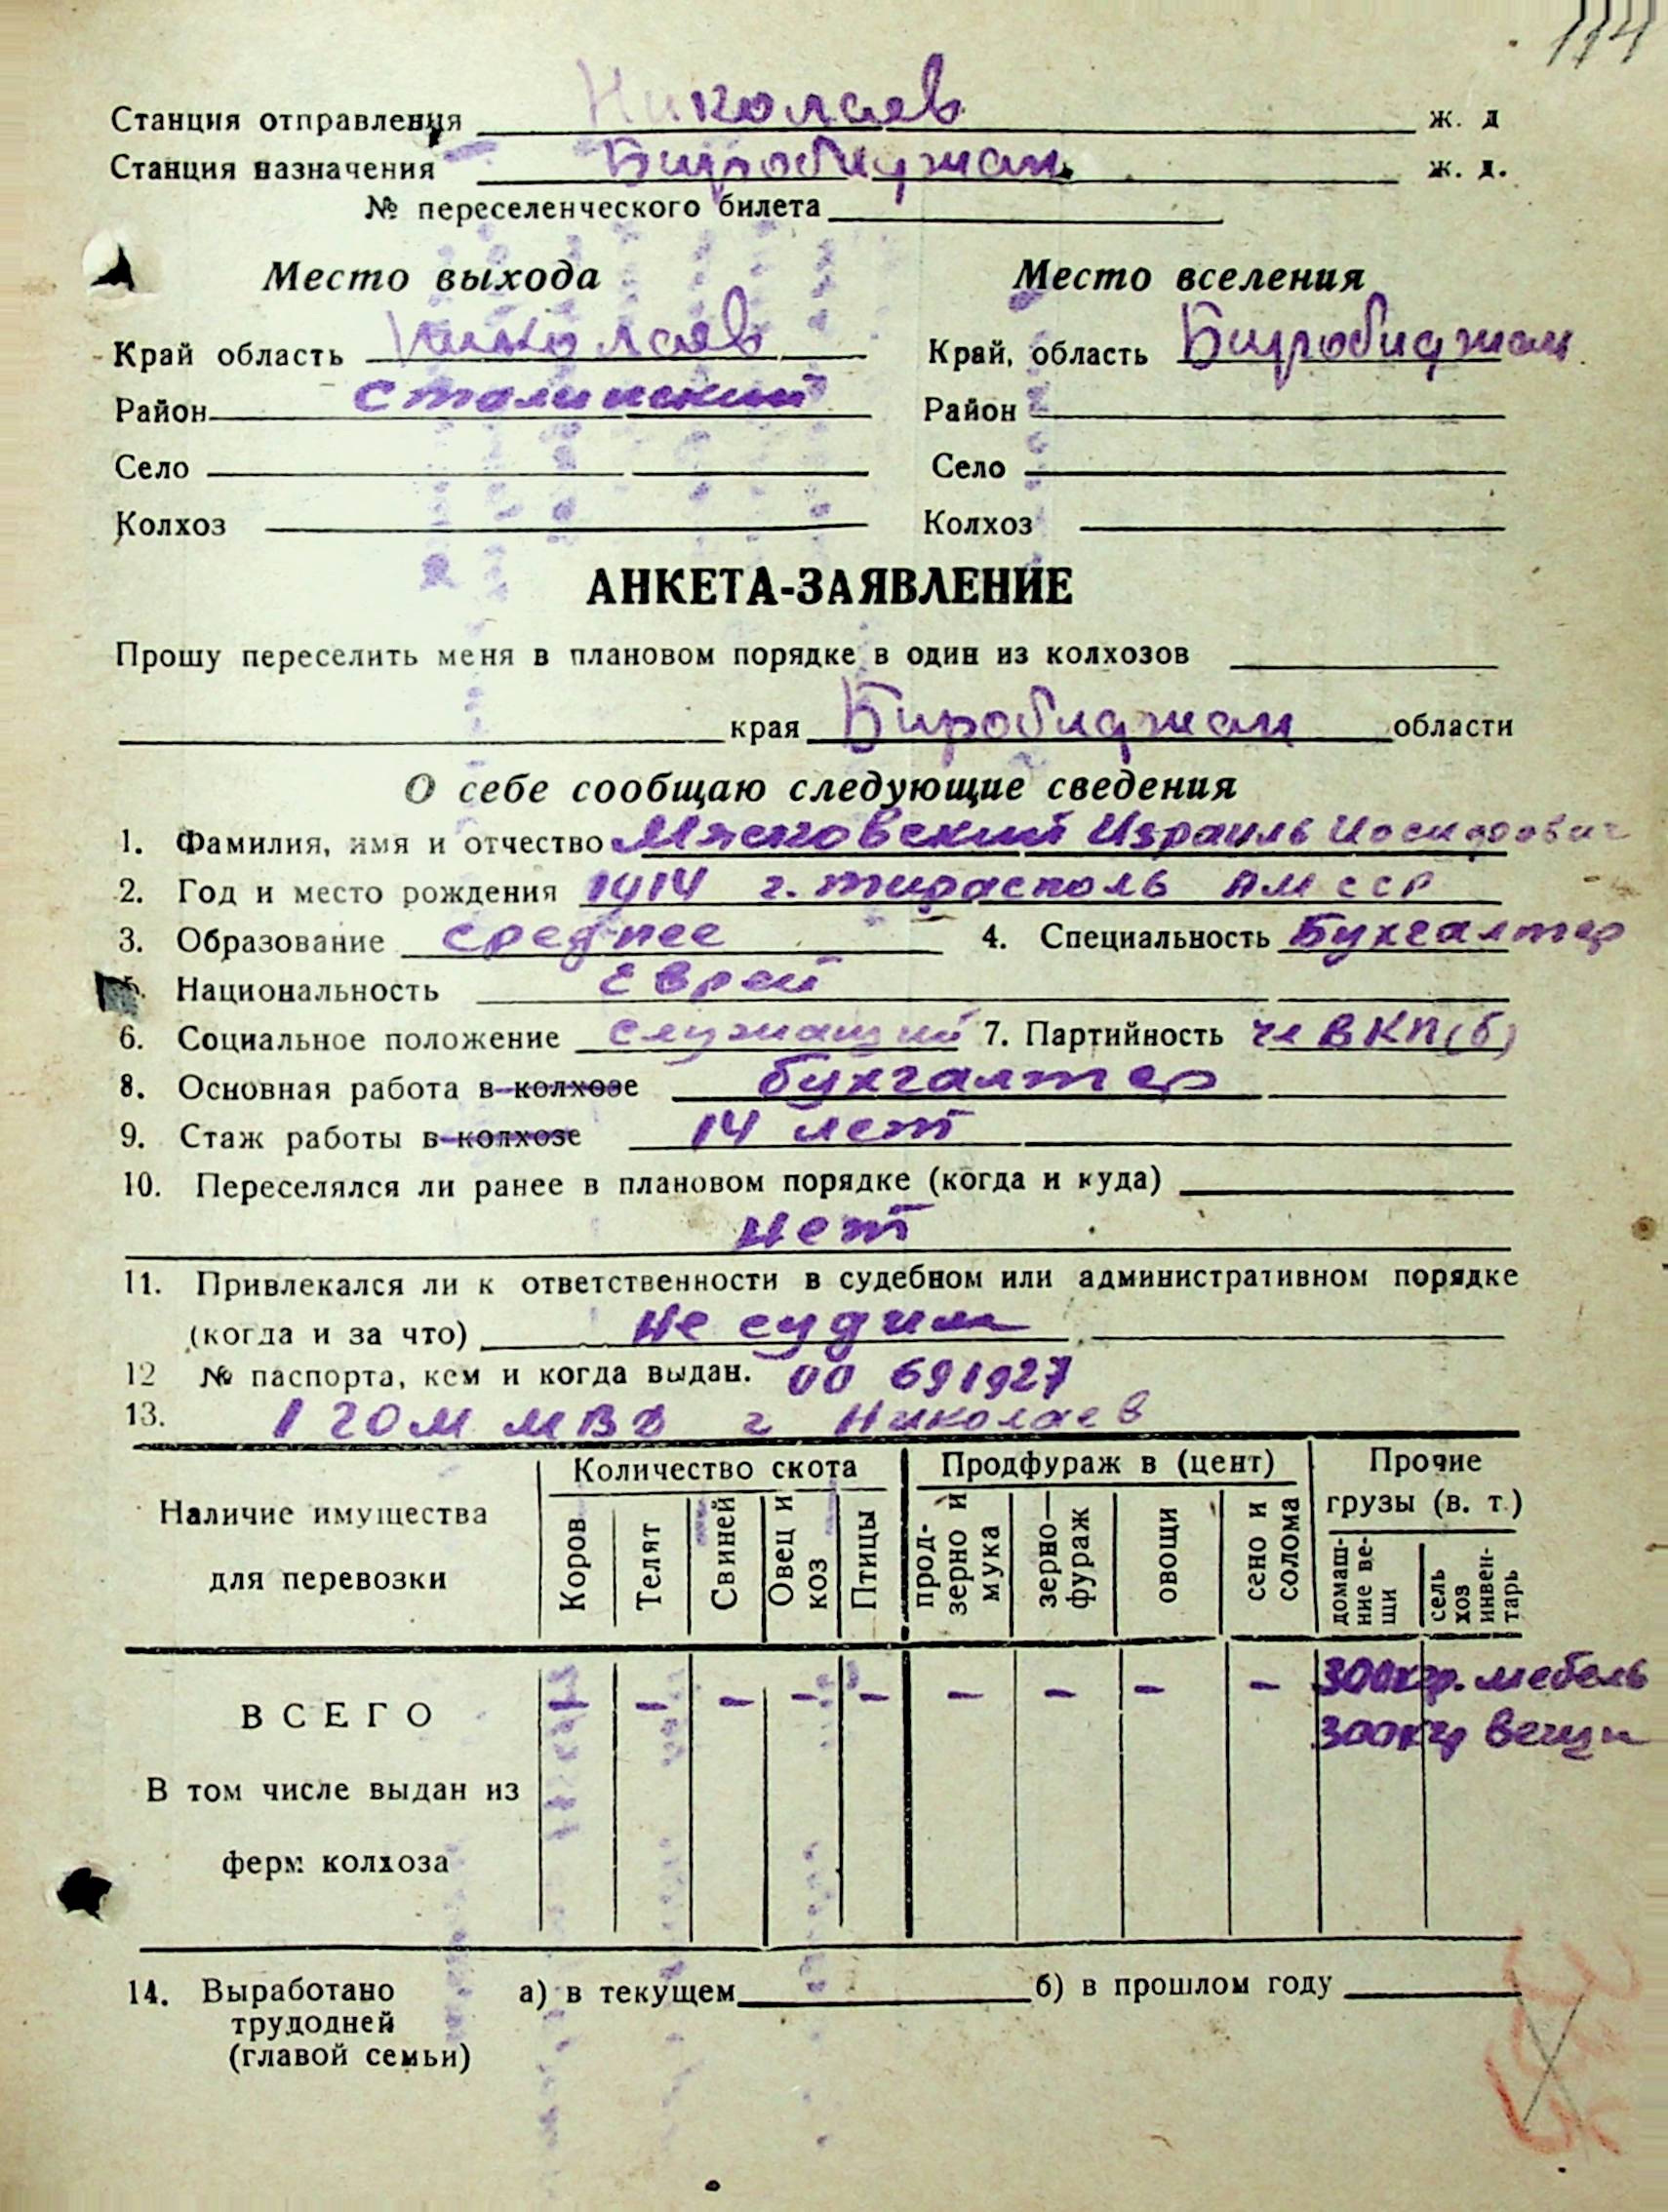 114
Станция отправления Николаев ж. д
Станция назначения Биробиджан ж. д.
№ переселенческого билета
Место выхода Место вселения
Край область Николаев Край, область Биробиджан
Район Сталинский Район
Село Село
Колхоз Колхоз
АНКЕТА-ЗАЯВЛЕНИЕ
Прошу переселить меня в плановом порядке в один из колхозов
края Биробиджан области
О себе сообщаю следующие сведения
1. Фамилия, имя и отчество Мясковский Израиль Иосифович
2. Год и место рождения 1914 г. Тирасполь АМССР
3. Образование среднее 4. Специальность Бухгалтер
5. Национальность Еврей
6. Социальное положение служащий 7. Партийность чл ВКП(б)
8. Основная работа в колхозе бухгалтер
9. Стаж работы в колхозе 14 лет
10. Переселялся ли ранее в плановом порядке (когда и куда)
нет
11. Привлекался ли к ответственности в судебном или административном порядке
(когда и за что) не судим
12 № паспорта, кем и когда выдан. 00 691927
13. 1 ГОМ МВД г Николаев
Наличие имущества для перевозки
Количество скота Продфураж в (цент) Прочие грузы (в. т.)
Коров Телят Свиней Овец и коз Птицы прод-зерно и мука зерно—фураж овощи сено и солома домаш-ние ве-щи сель хоз инвен-тарь
ВСЕГО - - - - - - - - - 300кгр. мебель
300кгр вещи
В том числе выдан из
ферм колхоза
14. Выработано а) в текущем б) в прошлом году
трудодней
(главой семьи)